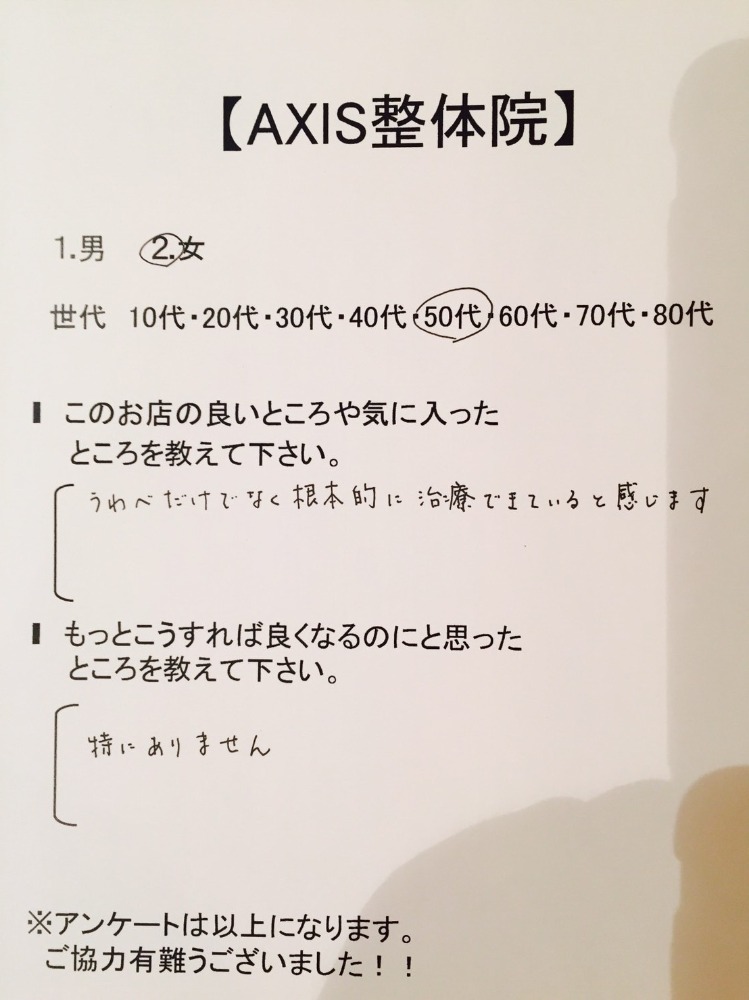 【AXIS整体院】
1.男 2.女
世代 10代・20代・30代・40代・50代・60代・70代・80代
このお店の良いところや気に入った
ところを教えて下さい。
うわべだけでなく根本的に治療できていると感じます
もっとこうすれば良くなるのにと思った
ところを教えて下さい。
特にありません
※アンケートは以上になります。
ご協力有難うございました！！